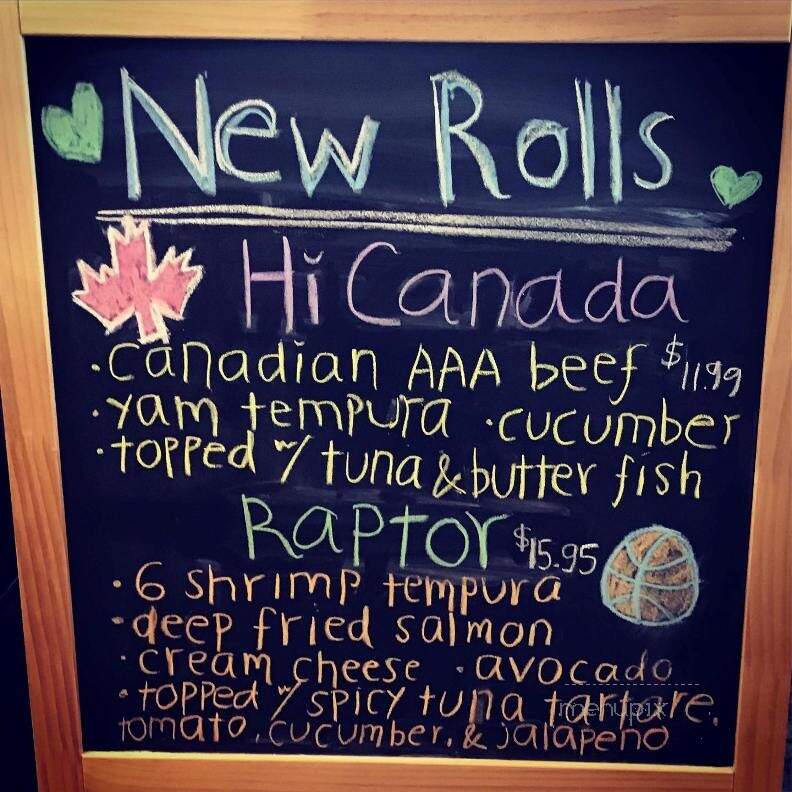 New Rolls
Hi Canada
· canadian AAA beef $11.99
· yam tempura · cucumber
· topped w/ tuna & butter fish
Raptor $15.95
· 6 shrimp tempura
· deep fried salmon
· cream cheese · avocado
· topped w/ spicy tuna tartare,
tomato, cucumber, & jalapeno
menupix